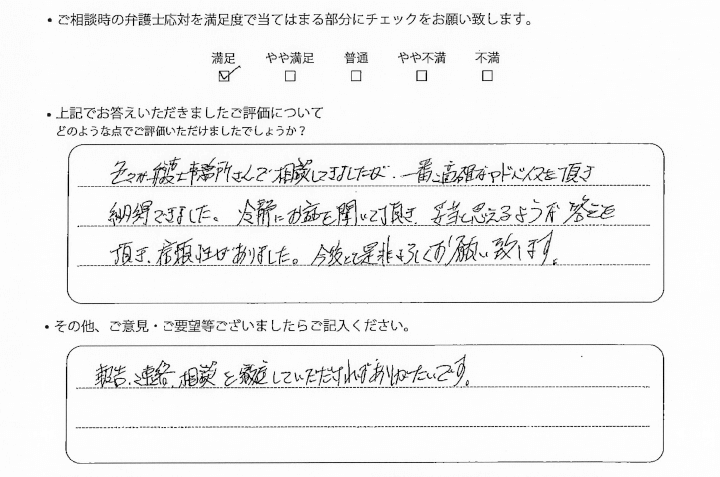 ・ご相談時の弁護士応対を満足度で当てはまる部分にチェックをお願い致します。
満足 やや満足 普通 やや不満 不満
・上記でお答えいただきましたご評価について
どのような点でご評価いただけましたでしょうか？
弁護士事務所さんで相談してきましたが、一番適確なアドバイスを頂き
納得できました。冷静にお話を聞いて頂き、妥当と思えるような答えを
頂き、信頼性がありました。今後とも是非よろしくお願い致します。
・その他、ご意見・ご要望等ございましたらご記入ください。
報告、連絡、相談を徹底していただければありがたいです。